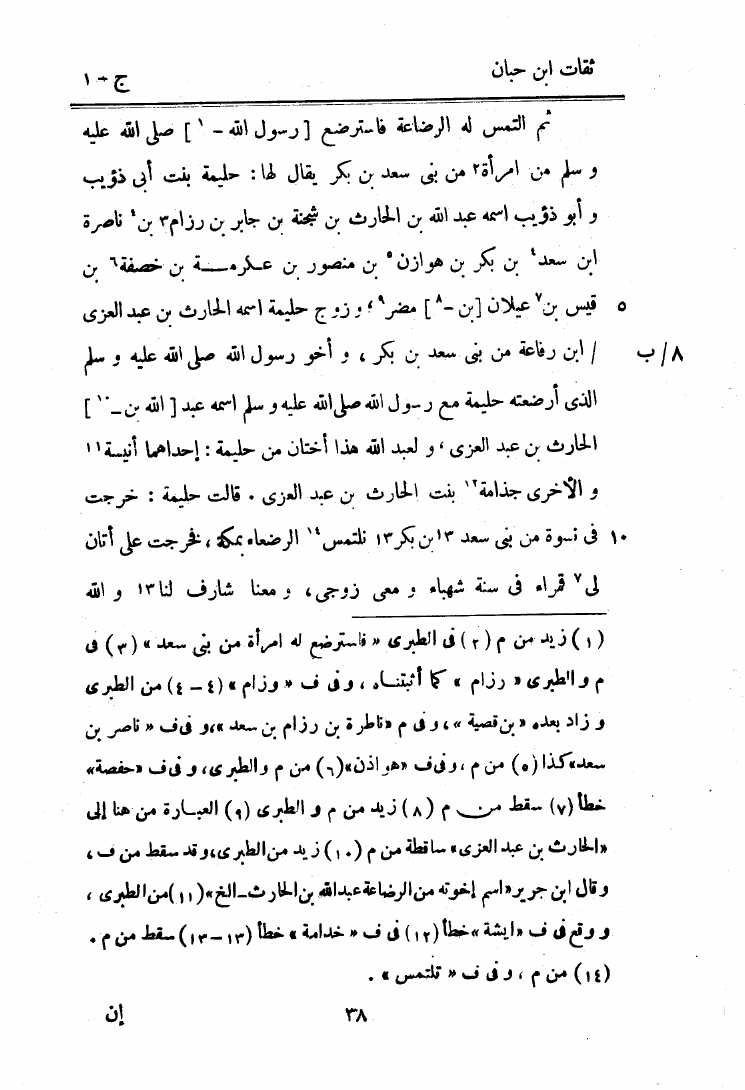 ثقات ابن حبان ج - ١
ثم التمس له الرضاعة فاسترضع [ رسول الله - ١ ] صلى الله عليه
و سلم من امرأة٢ من بنى سعد بن بكر يقال لها : حليمة بنت أبى ذؤيب
و أبو ذؤيب اسمه عبد الله بن الحارث بن شجنة بن جابر بن رزام٣ بن٤ ناصرة
ابن سعد٤ بن بكر بن هوازن٥ بن منصور بن عكرمــة بن خصفة٦ بن
٥ قيس بن٧ عيلان [بن -٨] مضر٩ ؛ و زوج حليمة اسمه الحارث بن عبد العزى
٨/ ب / ابن رفاعة من بنى سعد بن بكر ، و أخو رسول الله صلى الله عليه و سلم
الذى أرضعته حليمة مع رسول الله صلى الله عليه و سلم اسمه عبد [ الله بن -١٠ ]
الحارث بن عبد العزى ، و لعبد الله هذا أختان من حليمة : إحداهما أنيسة١١
و الأخرى جذامة١٢ بنت الحارث بن عبد العزى . قالت حليمة : خرجت
١٠ فى نسوة من بنى سعد ١٣ابن بكر١٣ نلتمس١٤ الرضعاء بمكة ، فخرجت على أتان
لى٧ قمراء فى سنة شهباء و معى زوجى، و معنا شارف لنا١٣ و الله
(١) زيد من م (٢) فى الطبرى « فاسترضع له امرأة من بنى سعد » (٣) فى
م و الطبرى « رزام » كما أثبتناه ، و فى ف « وزام » (٤ - ٤) من الطبرى
و زاد بعده « بن قصية » ، و فى م «ناطرة بن رزام بن سعد »، و فى ف « ناصر بن
سعد» كذا (٥) من م ، و فى ف «هواذن» (٦) من م و الطبرى، و فى ف «حفصة»
خطأ (٧) سقط من م (٨) زيد من م و الطبرى (٩) العبارة من هنا إلى
«الحارث بن عبد العزى» ساقطة من م (١٠) زيد من الطبرى، و قد سقط من ف ،
و قال ابن جرير «اسم إخوته من الرضاعة عبد الله بن الحارث - الخ» (١١) من الطبرى ،
و وقع فى ف « ايشة » خطأ (١٢) فى ف « خدامة » خطأ (١٣ - ١٣) سقط من م .
(١٤) من م ، و فى ف « تلتمس » .
٣٨ إن